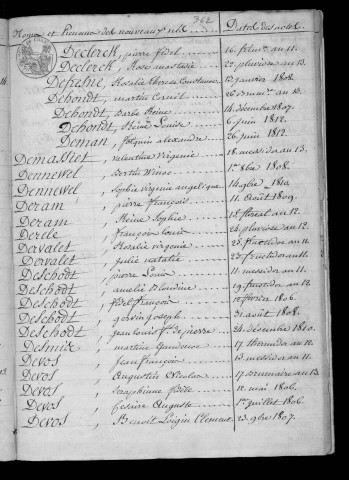 362
Noms et Prenoms des nouveaux nés. Dates des actes.
Declerck, pierre fidel 16. frim.re an 11.
Declerck, Rose anastasie 22. pluviose an 13.
Defresne, Rosalie therese Constance 12 janvier 1808.
Dehondt, martin Corneil
Dehondt, Barbe Reine 14 décembre 1807.
Dehondt, Reine Louise 6 juin 1812.
Deman, Joseph alexandre 26 juin 1812.
Demassiet, valentine virginie 18 messidor an 13.
Dennewel, Berthe 1.er 8bre 1808.
Dennewel, Sophie virginie angelique 14 9bre 1810.
Deram, pierre françois 11. août 1809.
Deram, Reine Sophie 18 floreal an 12.
Derele, françois Louis 24 pluviose an 12.
Dervalet, Rosalie virginie 25 fructidor an 13.
Dervalet, Julie natalie 23 fructidor an 11.
Deschodt, pierre Louis 11. messidor an 11.
Deschodt, amelie Blondine 19 fructidor an 12.
Deschodt, fidel françois 12 fevrier 1806.
Deschodt, Joseph 31 août 1808.
Deschodt, jean louis f.s de pierre 28 décembre 1810.
Desmix, martin 17 thermidor an 13.
Devos, jean françois 13 messidor an 11.
Devos, Augustin Nicolas 17 brumaire an 13.
Devos, Seraphinne 12 mai 1806.
Devos, Auguste 1.er juillet 1806.
Devos, Benoit Clement 23 9bre 1807.